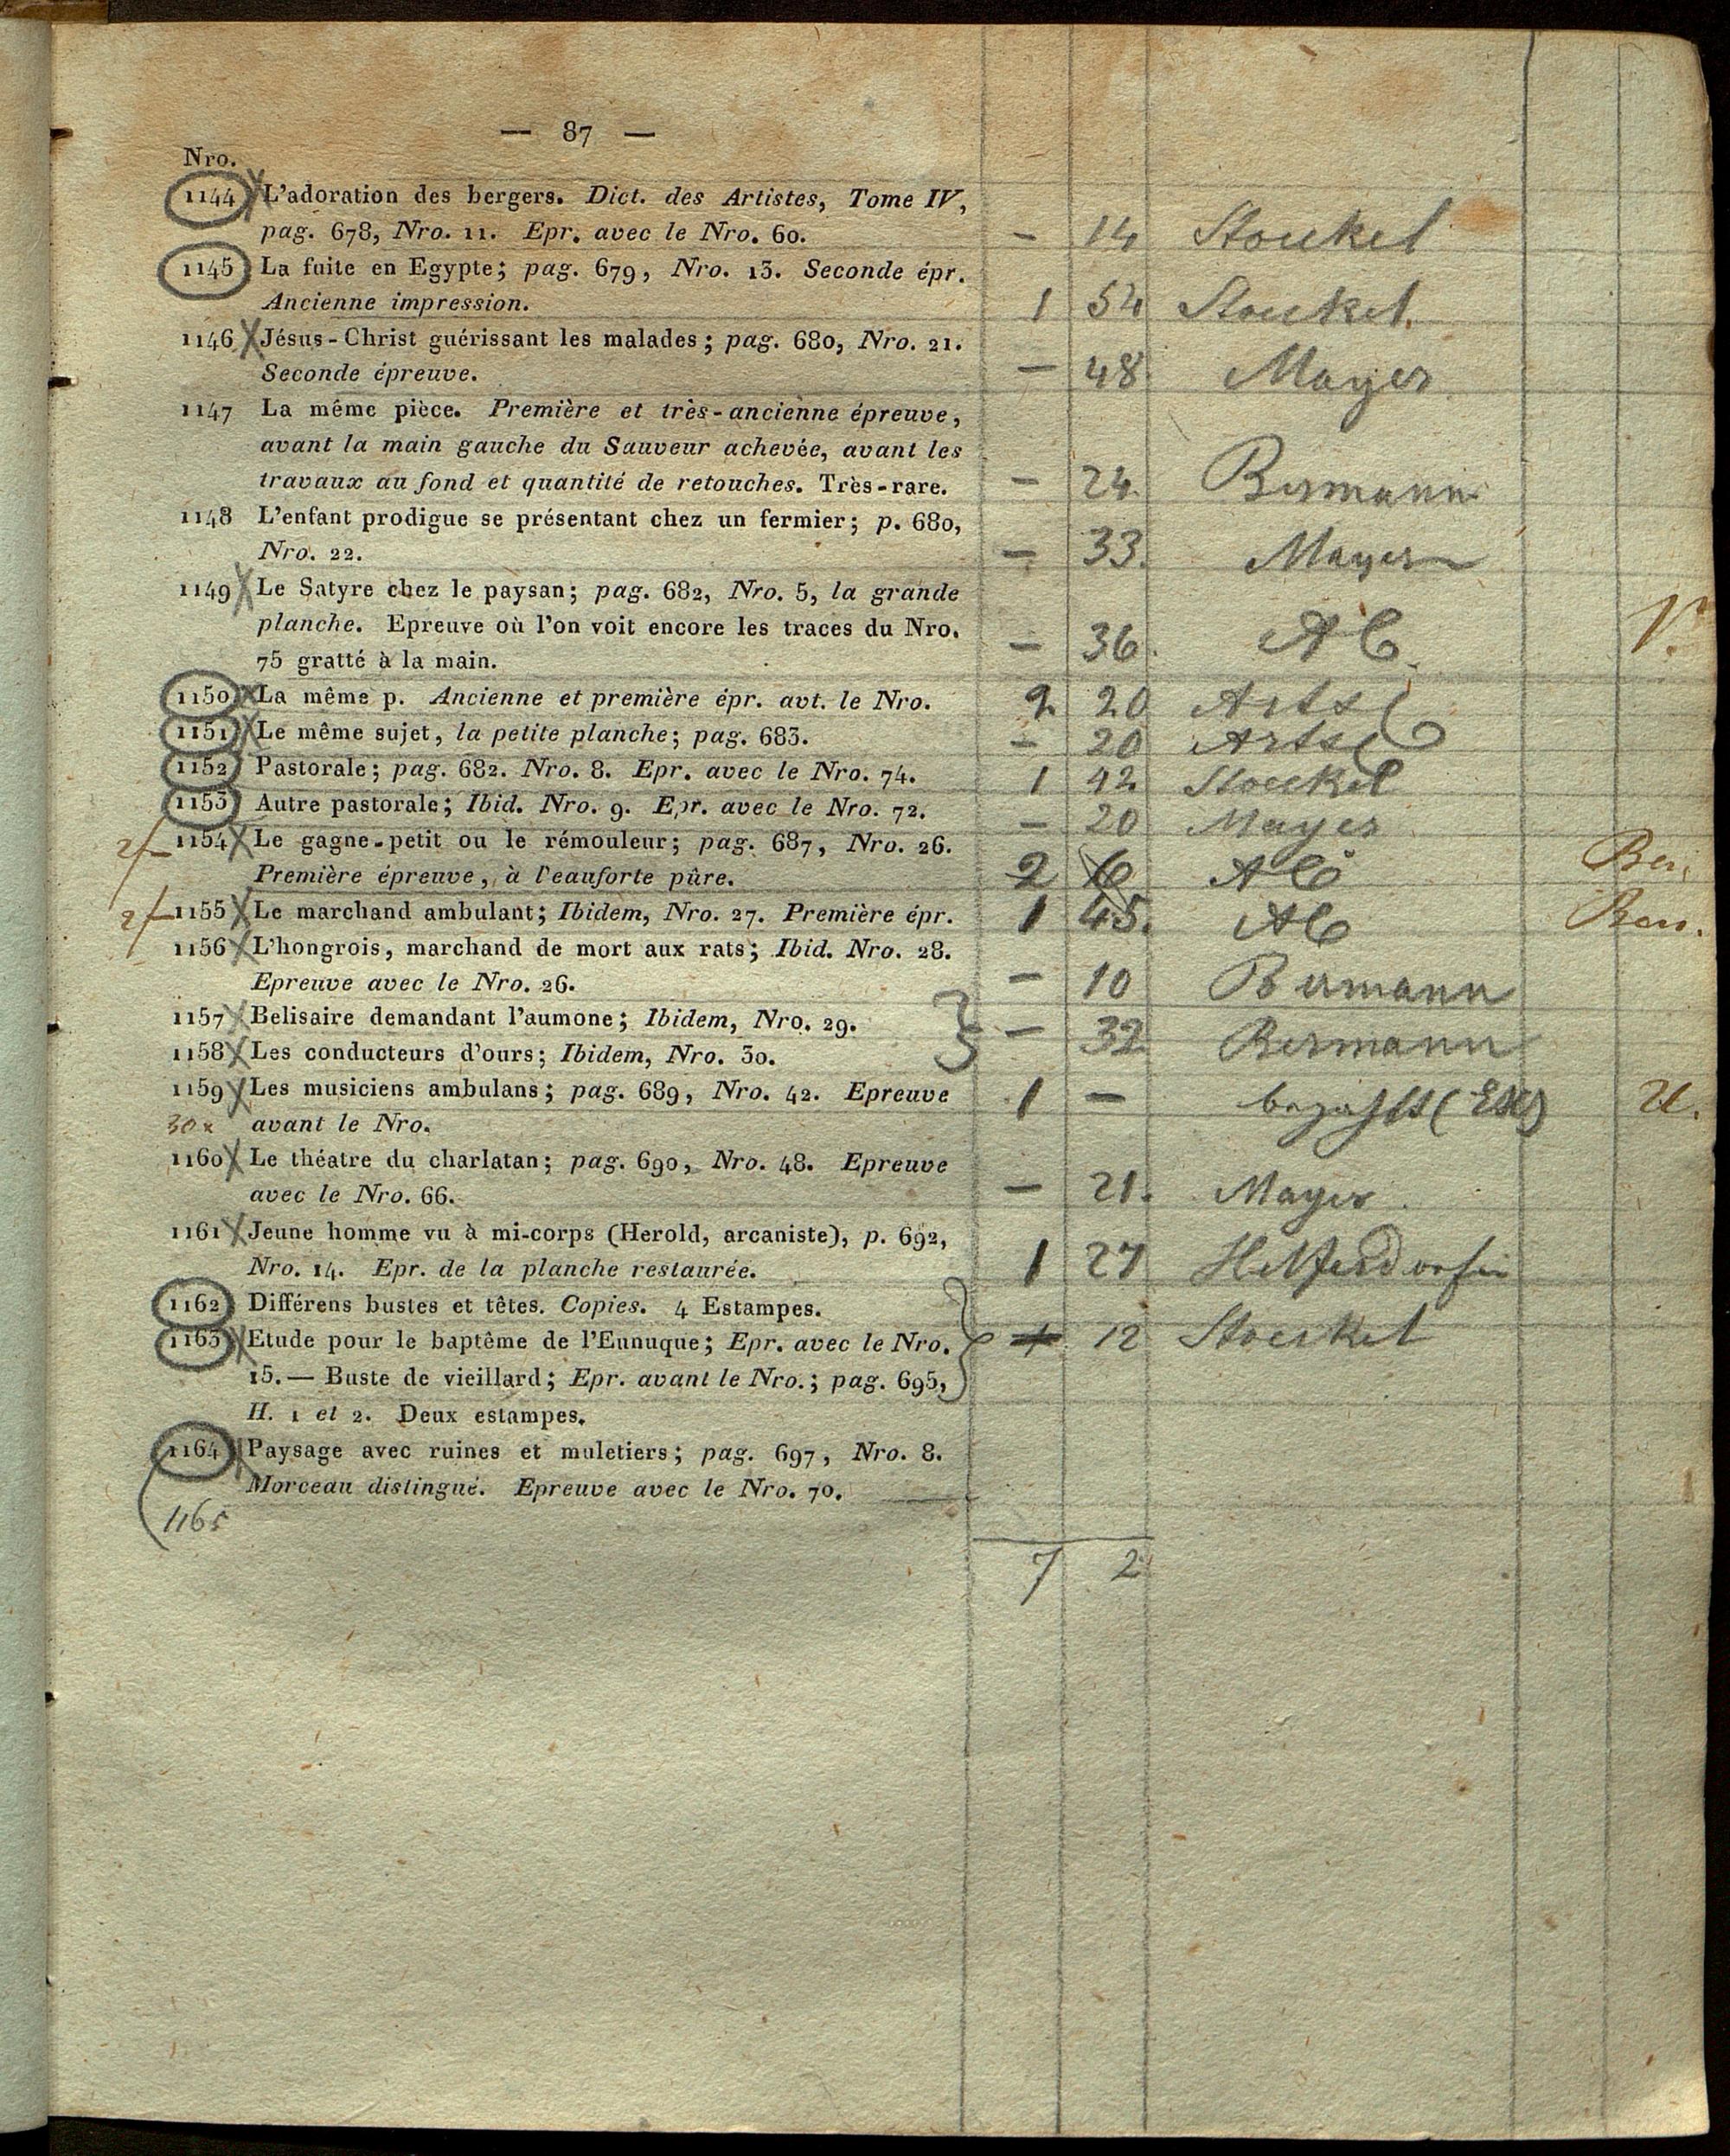 — 87 —
Nro.
1144 L'adoration des bergers. Dict. des Artistes, Tome IV,
pag. 678, Nro. 11. Epr. avec le Nro. 60. — 14 Stoeckel
1145 La fuite en Egypte; pag. 679, Nro. 13. Seconde épr.
Ancienne impression. 1 54 Stoeckel.
1146 Jésus-Christ guérissant les malades; pag. 680, Nro. 21.
Seconde épreuve. — 48 Mayer
1147 La même pièce. Première et très-ancienne épreuve,
avant la main gauche du Sauveur achevée, avant les
travaux au fond et quantité de retouches. Très-rare. — 24. Bermann
1148 L'enfant prodigue se présentant chez un fermier; p. 680,
Nro. 22. — 33. Mayer
1149 Le Satyre chez le paysan; pag. 682, Nro. 5, la grande
planche. Epreuve où l'on voit encore les traces du Nro.
75 gratté à la main. — 36.
1150 La même p. Ancienne et première épr. avt. le Nro. 2 20
1151 Le même sujet, la petite planche; pag. 683. — 20
1152 Pastorale; pag. 682. Nro. 8. Epr. avec le Nro. 74. 1 42 Stoeckel
1153 Autre pastorale; Ibid. Nro. 9. Epr. avec le Nro. 72. — 20 Mayer
1154 Le gagne-petit ou le rémouleur; pag. 687, Nro. 26.
Première épreuve, à l'eauforte pûre. 2 Ber.
1155 Le marchand ambulant; Ibidem, Nro. 27. Première épr. 1 45. Ber.
1156 L'hongrois, marchand de mort aux rats; Ibid. Nro. 28.
Epreuve avec le Nro. 26. — 10 Bermann
1157 Belisaire demandant l'aumone; Ibidem, Nro. 29. — 32 Bermann
1158 Les conducteurs d'ours; Ibidem, Nro. 30.
1159 Les musiciens ambulans; pag. 689, Nro. 42. Epreuve 1 —
30x avant le Nro.
1160 Le théatre du charlatan; pag. 690, Nro. 48. Epreuve
avec le Nro. 66. — 21. Mayer
1161 Jeune homme vu à mi-corps (Herold, arcaniste), p. 692,
Nro. 14. Epr. de la planche restaurée. 1 27
1162 Différens bustes et têtes. Copies. 4 Estampes.
1163 Etude pour le baptême de l'Eunuque; Epr. avec le Nro. 12 Stoeckel
15. — Buste de vieillard; Epr. avant le Nro.; pag. 695,
H. 1 et 2. Deux estampes.
1164 Paysage avec ruines et muletiers; pag. 697, Nro. 8.
Morceau distingué. Epreuve avec le Nro. 70.
1165
7 2